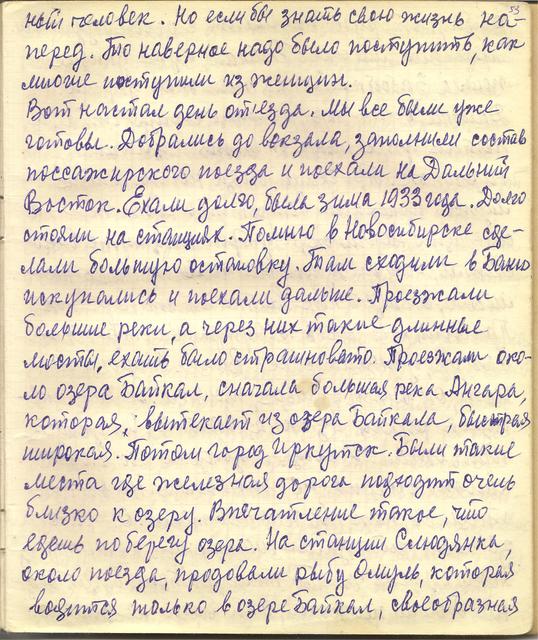 53
ный человек. Но если бы знать свою жизнь на-
перед. То наверное надо было поступить, как
многие поступили из женщин.
Вот настал день отъезда. Мы все были уже
готовы. Добрались до вокзала, заполнили состав
поссажирского поезда и поехали на Дальний
Восток. Ехали долго, была зима 1933 года. Долго
стояли на станциях. Помню в Новосибирске сде-
лали большую остановку. Там сходили в Баню
искупались и поехали дальше. Проезжали
большие реки, а через них такие длинные
мосты, ехать было страшновато. Проезжали око-
ло озера Байкал, сначала большая река Ангара,
которая, вытекает из озера Байкала, быстрая
широкая. Потом город Иркутск. Были такие
места где железная дорога подходит очень
близко к озеру. Впечатление такое, что
едешь по берегу озера. На станции Слюдянка,
около поезда, продовали рыбу Омуль, которая
водится только в озере Байкал, своеобразная